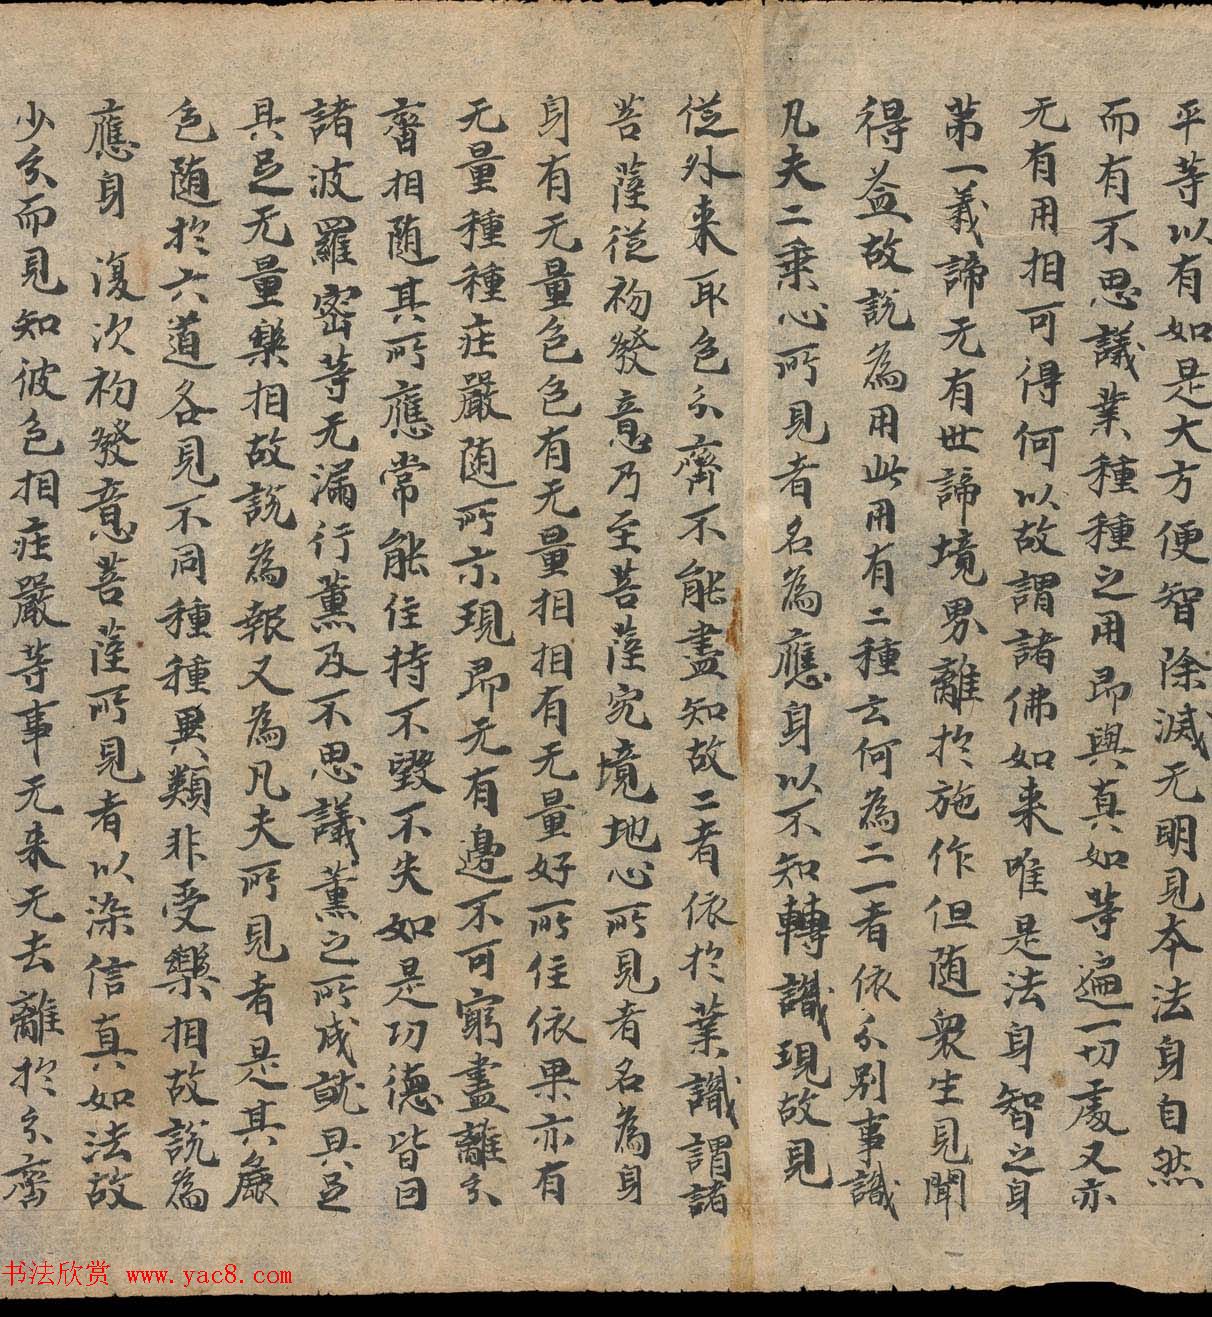 平等以有如是大方便智除滅无明見本法身自然
而有不思議業種種之用即與真如等遍一切處又亦
无有用相可得何以故謂諸佛如来唯是法身智之身
第一義諦无有世諦境界離於施作但随衆生見聞
得益故說為用此用有二種云何為二一者依分別事識
凡夫二乗心所見者名為應身以不知轉識現故見
従外来取色分齊不能盡知故二者依於業識謂諸
菩薩従初發意乃至菩薩究境地心所見者名為身
身有无量色色有无量相相有无量好所住依果亦有
无量種種莊嚴随所示現即无有邊不可窮盡離分
齊相随其所應常能住持不毀不失如是功德皆曰
諸波羅密等无漏行薫及不思議薫之所成就具足
具足无量樂相故說為報又為凡夫所見者是其麁
色随於六道各見不同種種異類非受樂相故說為
應身 復次初發意菩薩所見者以染信真如法故
少分而見知彼色相莊嚴等事无来无去離於分齊
书法欣赏 www.yac8.com